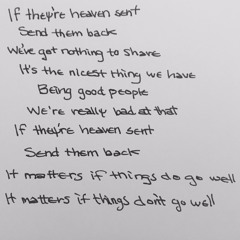 If they're heaven sent
Send them back
We've got nothing to share
It's the nicest thing we have
Being good people
We're really bad at that
If they're heaven sent
Send them back
It matters if things do go well
It matters if things don't go well